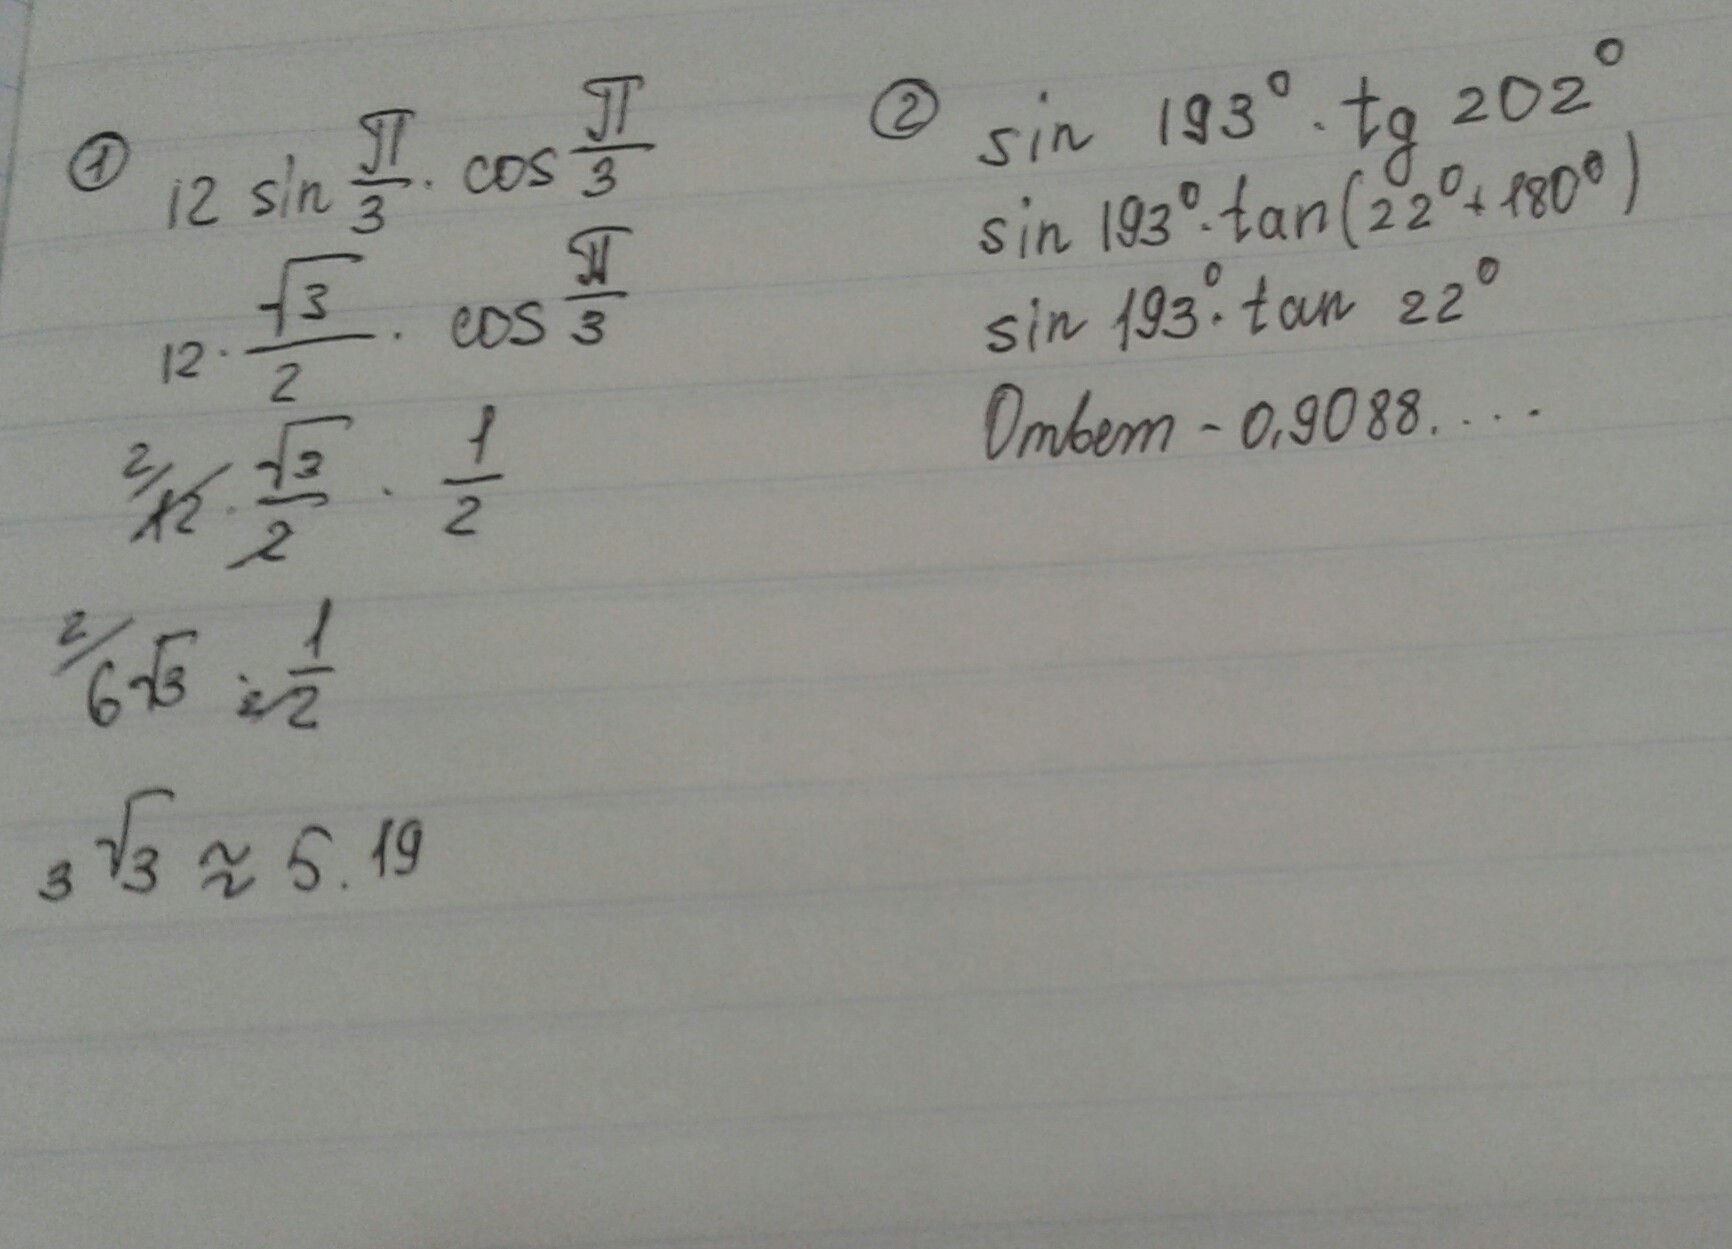 ① 12 sin π/3 · cos π/3
12 · √3/2 · cos π/3
2/ 12 · √3/2 · 1/2
2/ 6√3 · 1/2
3√3 ≈ 5.19
② sin 193° · tg 202°
sin 193° · tan(22° + 180°)
sin 193° · tan 22°
Ответ - 0,9088. ...